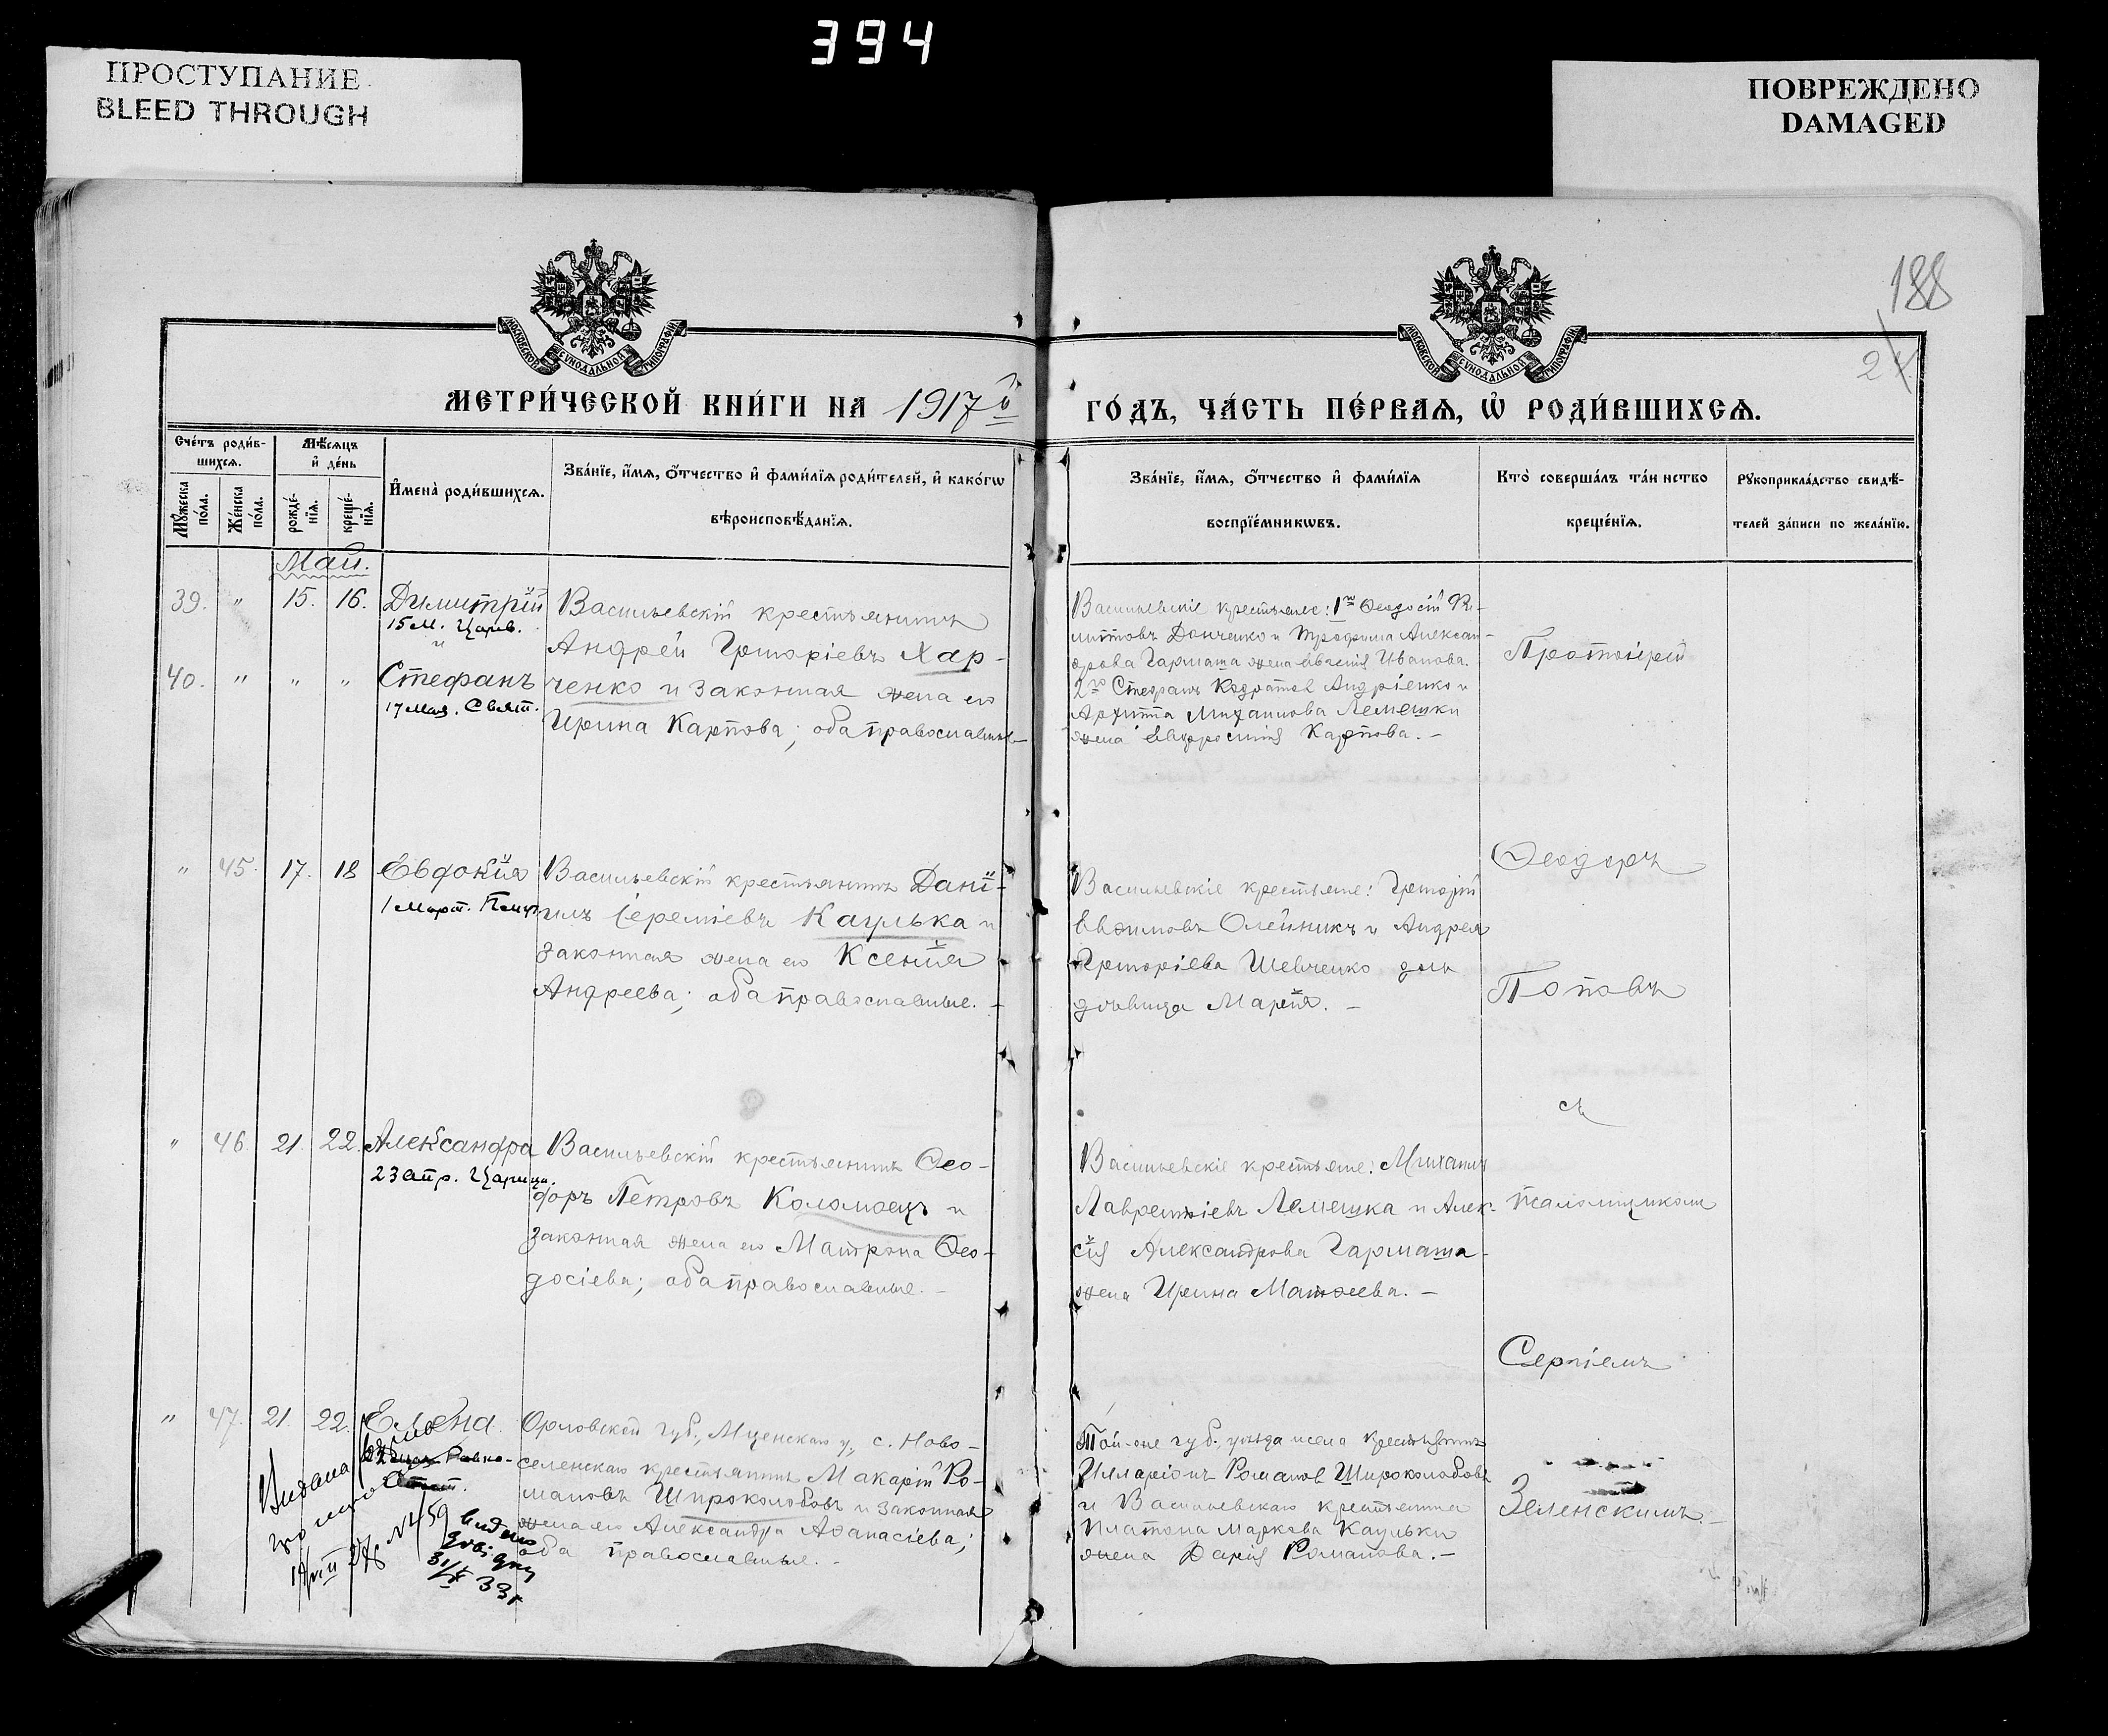 394
ПРОСТУПАНИЕ
BLEED THROUGH
ПОВРЕЖДЕНО
DAMAGED
188
24
МОСКОВСКОЙ СѴНОДАЛЬНОЙ ТИПОГРАФІИ
МОСКОВСКОЙ СѴНОДАЛЬНОЙ ТИПОГРАФІИ
МЕТРИ́ЧЕСКОЙ КНИ́ГИ НА 1917й
ГО́ДЪ, ЧА́СТЬ ПЕ́РВАЯ, Ѡ РОДИ́ВШИХСЯ.
Сче́тъ роди́в-
шихся.
Мѣ́сяцъ
и де́нь
Мꙋ́жеска по́ла.
Же́нска по́ла.
рожде́-
нїя.
креще́-
нїя.
Имена̀ роди́вшихся.
Зва́нїе, и́мя, ѻ́тчество и фами́лїя роди́телей, и како́гѡ
вѣроисповѣ́данїя.
Зва́нїе, и́мя, ѻ́тчество и фами́лїя
воспрїе́мникѡвъ.
Кто̀ соверша́лъ та́инство
креще́нїя.
Рꙋкоприкла́дство свидѣ́-
телей за́писи по жела́нїю.
Май.
39. " 15. 16. Димитрій
15 М. Царев.
и
40. " " " Стефанъ
17 Мая. Свят.
Васильевскій крестьянинъ
Андрей Григоріевъ Хар-
ченко и законная жена его
Ирина Карпова; оба православные
Васильевскіе крестьяне: 1го Ѳеодосій
Донченко и Трофима Алексан-
дрова Гармаша жена Евгенія Иванова.
2го Стефанъ Андріенко и
Архиппа Михаилова Лемешки
жена Евфросинія Карпова. –
Протоіерей
" 45. 17. 18 Евдокія
1 Март. Прмч.
Васильевскій крестьянинъ Дані-
илъ Іереміевъ Каулька и
законная жена его Ксенія
Андреева; оба православные. –
Васильевскіе крестьяне: Григорій
Евѳимовъ Олейникъ и Андрея
Григоріева Шевченко дочь
дѣвица Марія. –
Ѳеодоръ
Поповъ
съ
" 46 21. 22. Александра
23 апр. Царица.
Васильевскій крестьянинъ Ѳео-
доръ Петровъ Коломоецъ и
законная жена его Матрона Ѳео-
досіева; оба православные. –
Васильевскіе крестьяне: Михаилъ
Лаврентіевъ Лемешка и Алек-
сія Александрова Гармаша
жена Ирина Матѳеева. –
псаломщикомъ
Сергіемъ
" 47. 21. 22. Елена.
21 Мая Равно-
Орловской губ., Мценскаго у., с. Ново-
селенскаго крестьянинъ Макарій Ро-
мановъ Широколобовъ и законная
жена его Александра Аѳанасіева;
оба православные. –
Той-же губ., уѣзда и села крестьянинъ
Илларіонъ Романовъ Широколобовъ
и Васильевскаго крестьянина
Платона Маркова Каульки
жена Дарія Романова. –
Зеленскимъ. –
Видана
N 459
видано
довідку
31/X 33 г